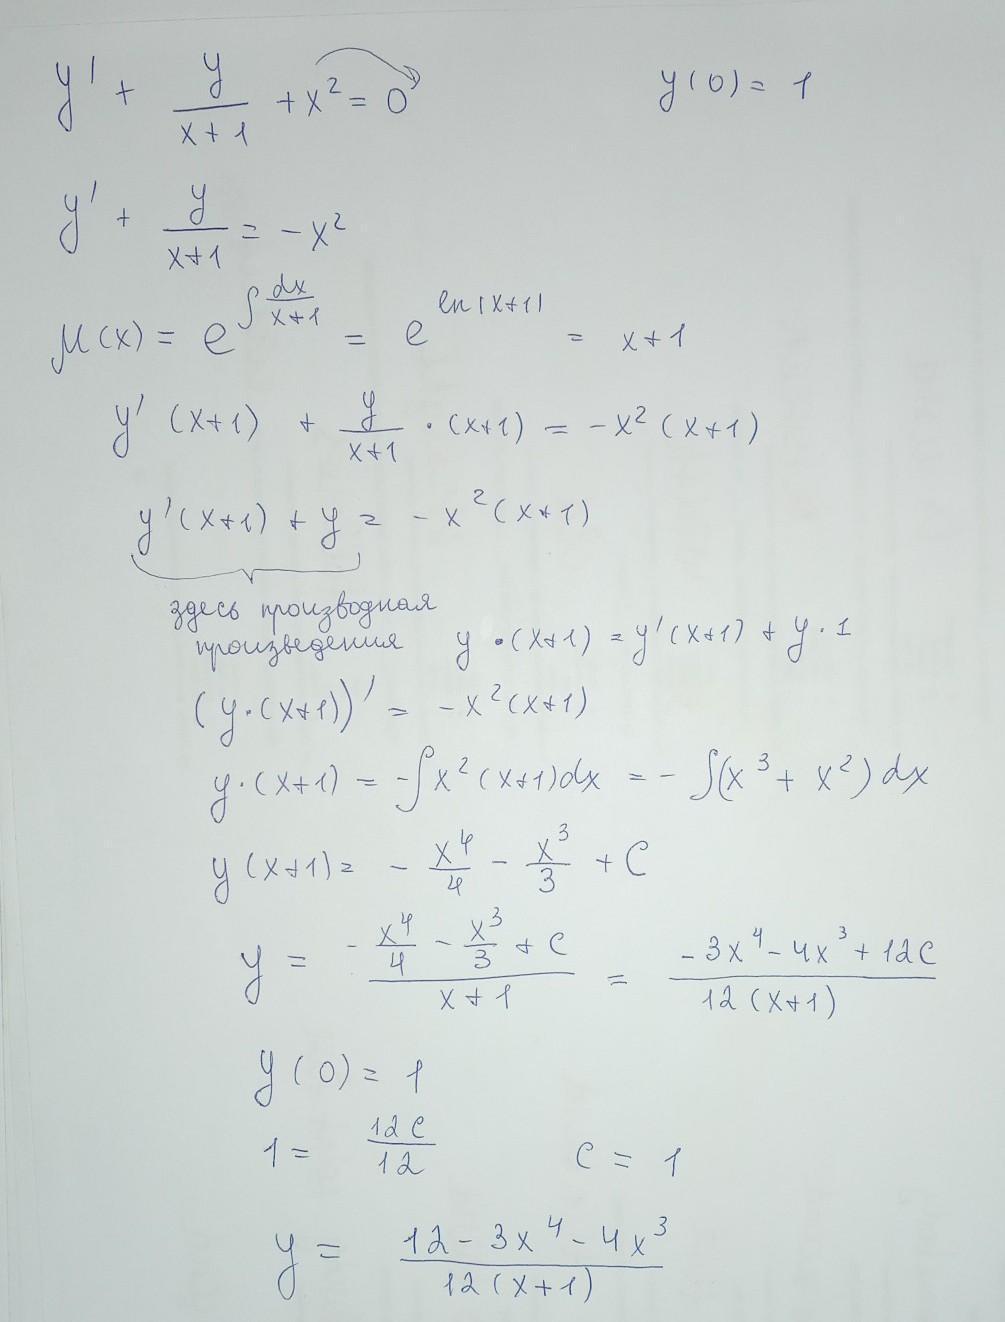 y' + y/(x+1) + x² = 0 y(0) = 1
y' + y/(x+1) = -x²
μ(x) = e^(∫dx/(x+1)) = e^(ln|x+1|) = x+1
y' (x+1) + y/(x+1) · (x+1) = -x² (x+1)
y'(x+1) + y = -x²(x+1)
здесь производная
произведения y·(x+1) = y'(x+1) + y·1
(y·(x+1))' = -x²(x+1)
y·(x+1) = -∫x²(x+1)dx = -∫(x³ + x²)dx
y(x+1) = -x⁴/4 - x³/3 + C
y = (-x⁴/4 - x³/3 + C)/(x+1) = (-3x⁴ - 4x³ + 12C)/(12(x+1))
y(0) = 1
1 = 12C/12 C = 1
y = (12 - 3x⁴ - 4x³)/(12(x+1))